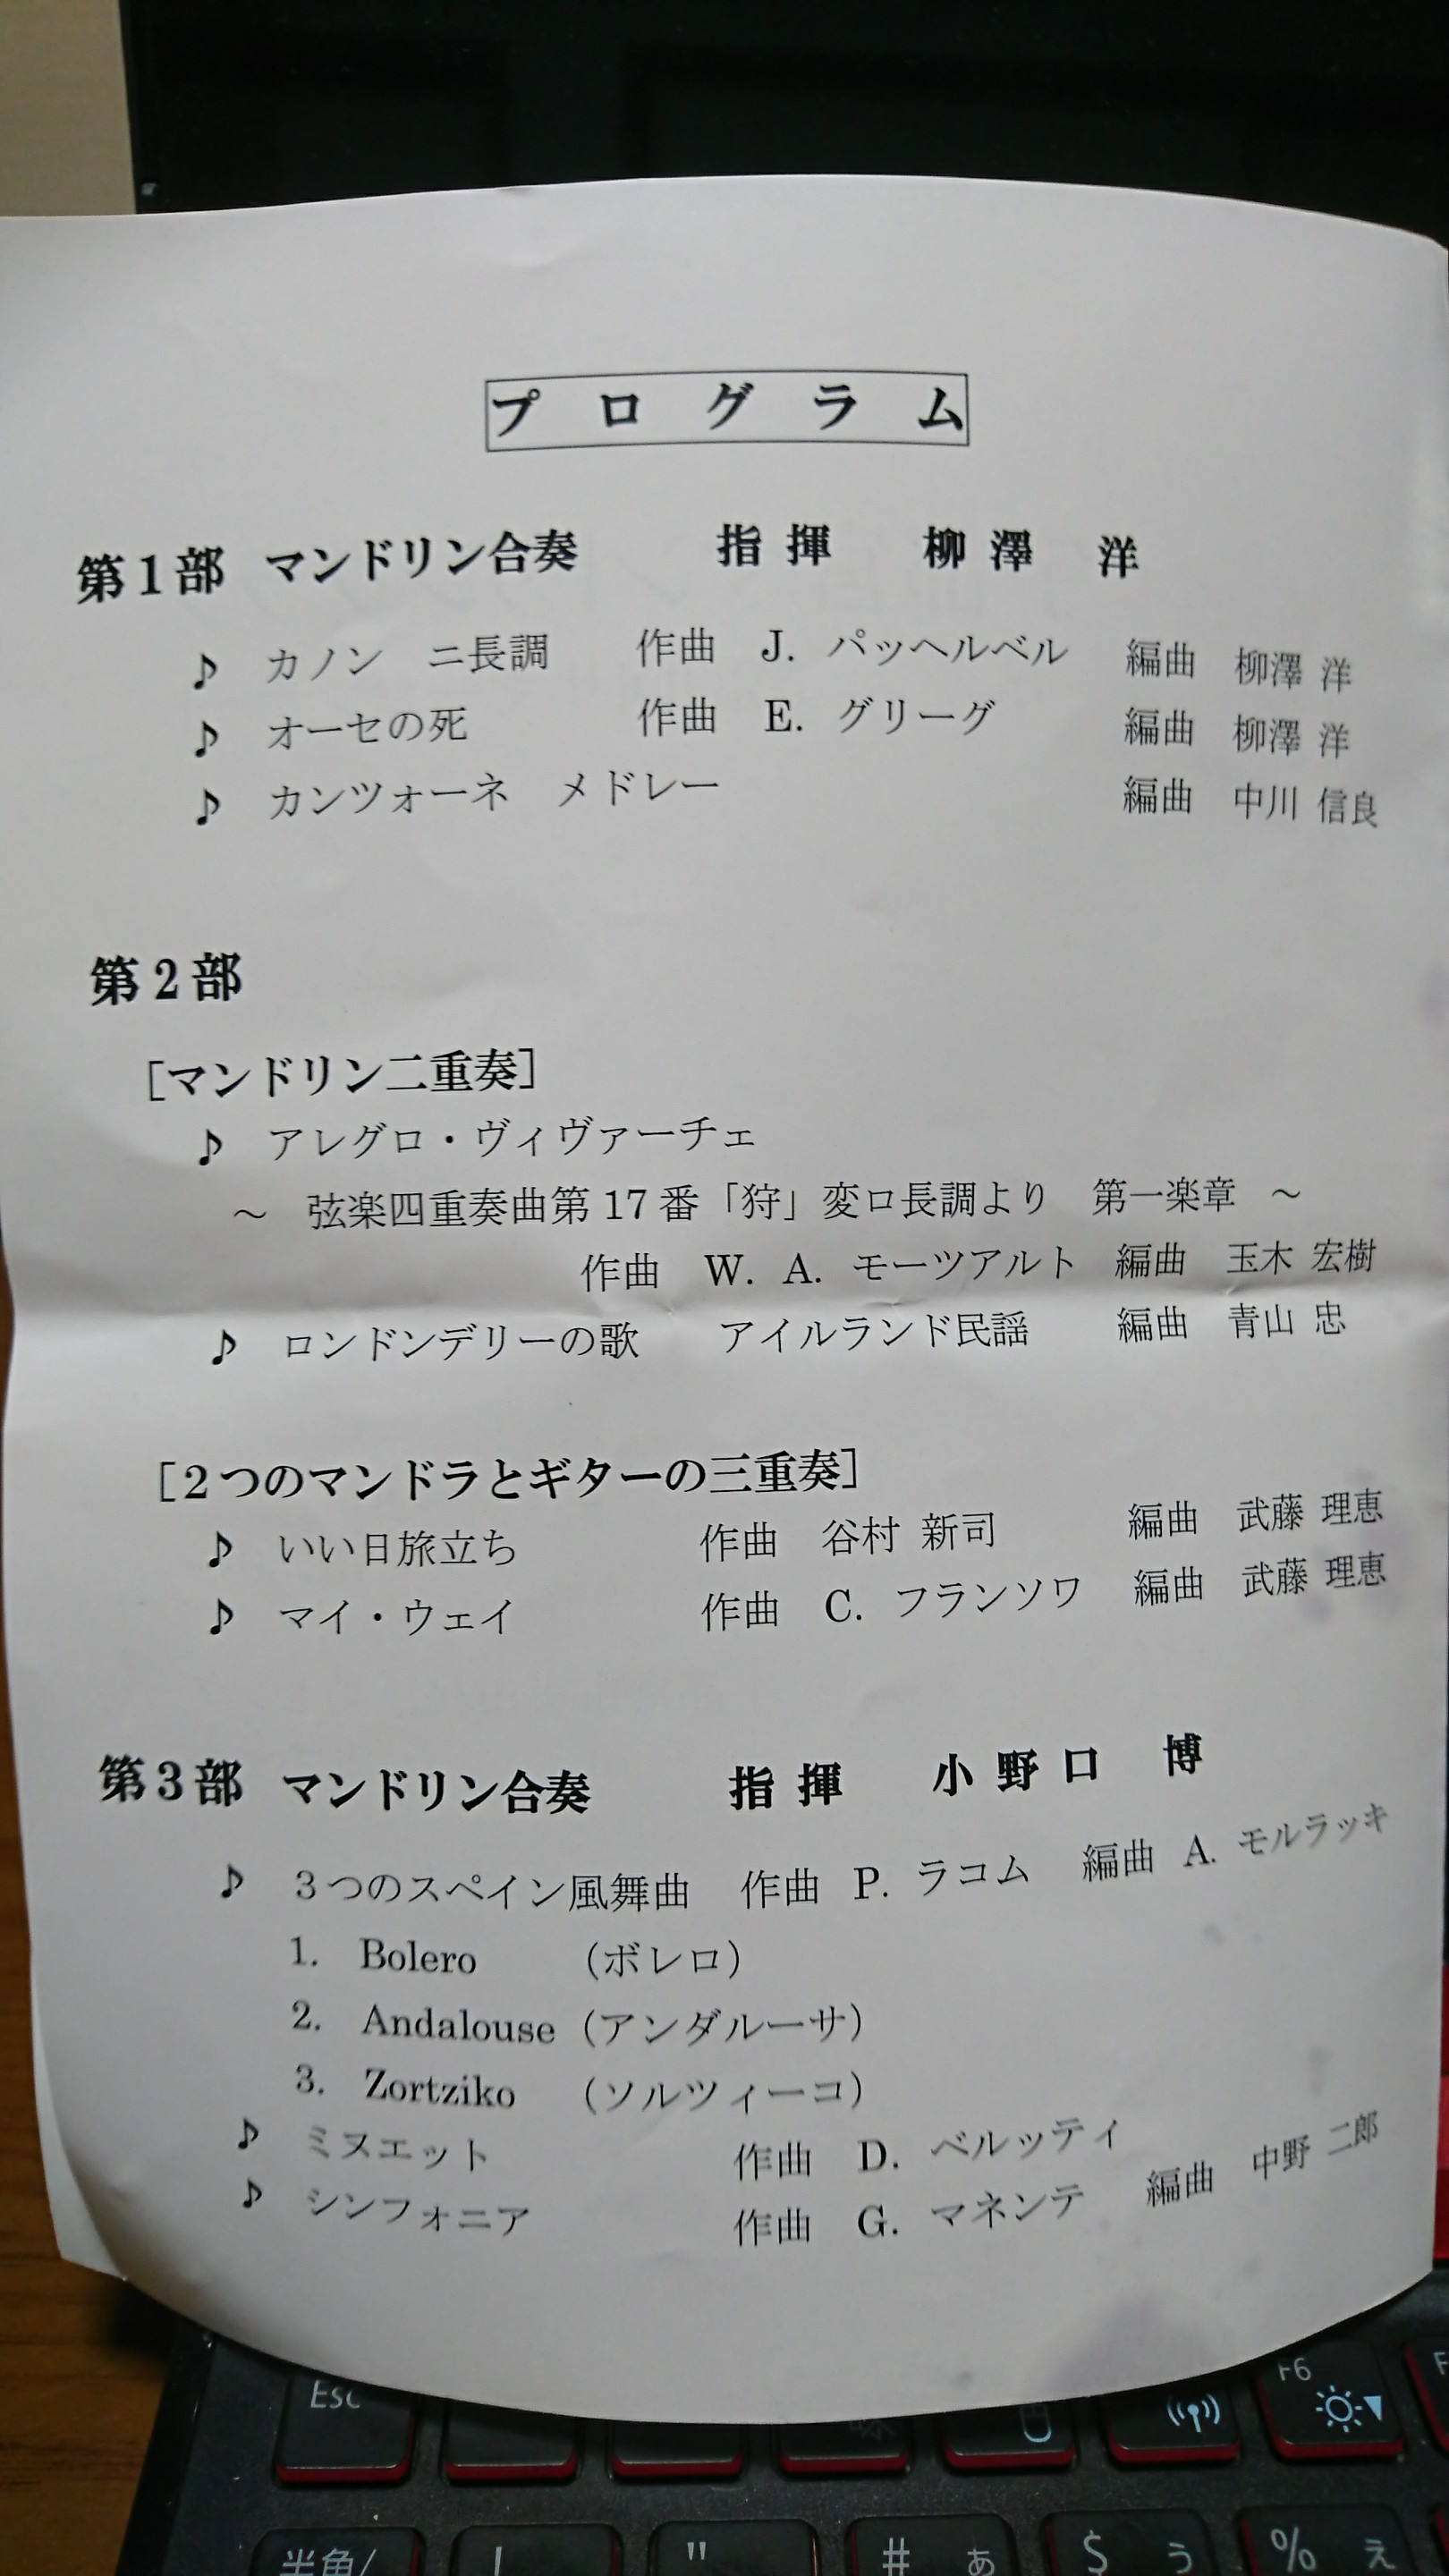 プログラム
第1部 マンドリン合奏 指揮 柳澤 洋
♪ カノン ニ長調 作曲 J. パッヘルベル 編曲 柳澤 洋
♪ オーセの死 作曲 E. グリーグ 編曲 柳澤 洋
♪ カンツォーネ メドレー 編曲 中川 信良
第2部
[マンドリン二重奏]
♪ アレグロ・ヴィヴァーチェ
～ 弦楽四重奏曲第17番「狩」変ロ長調より 第一楽章 ～
作曲 W. A. モーツアルト 編曲 玉木 宏樹
♪ ロンドンデリーの歌 アイルランド民謡 編曲 青山 忠
[2つのマンドラとギターの三重奏]
♪ いい日旅立ち 作曲 谷村 新司 編曲 武藤 理恵
♪ マイ・ウェイ 作曲 C. フランソワ 編曲 武藤 理恵
第3部 マンドリン合奏 指揮 小野口 博
♪ 3つのスペイン風舞曲 作曲 P. ラコム 編曲 A. モルラッキ
1. Bolero (ボレロ)
2. Andalouse (アンダルーサ)
3. Zortziko (ソルツィーコ)
♪ ミヌエット 作曲 D. ベルッティ
♪ シンフォニア 作曲 G. マネンテ 編曲 中野 二郎
Esc F6
半角/ ! " # あ $ う % え